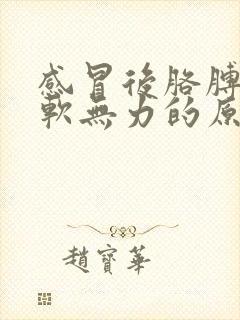 感冒後胳膊
軟無力的原
趙寶華